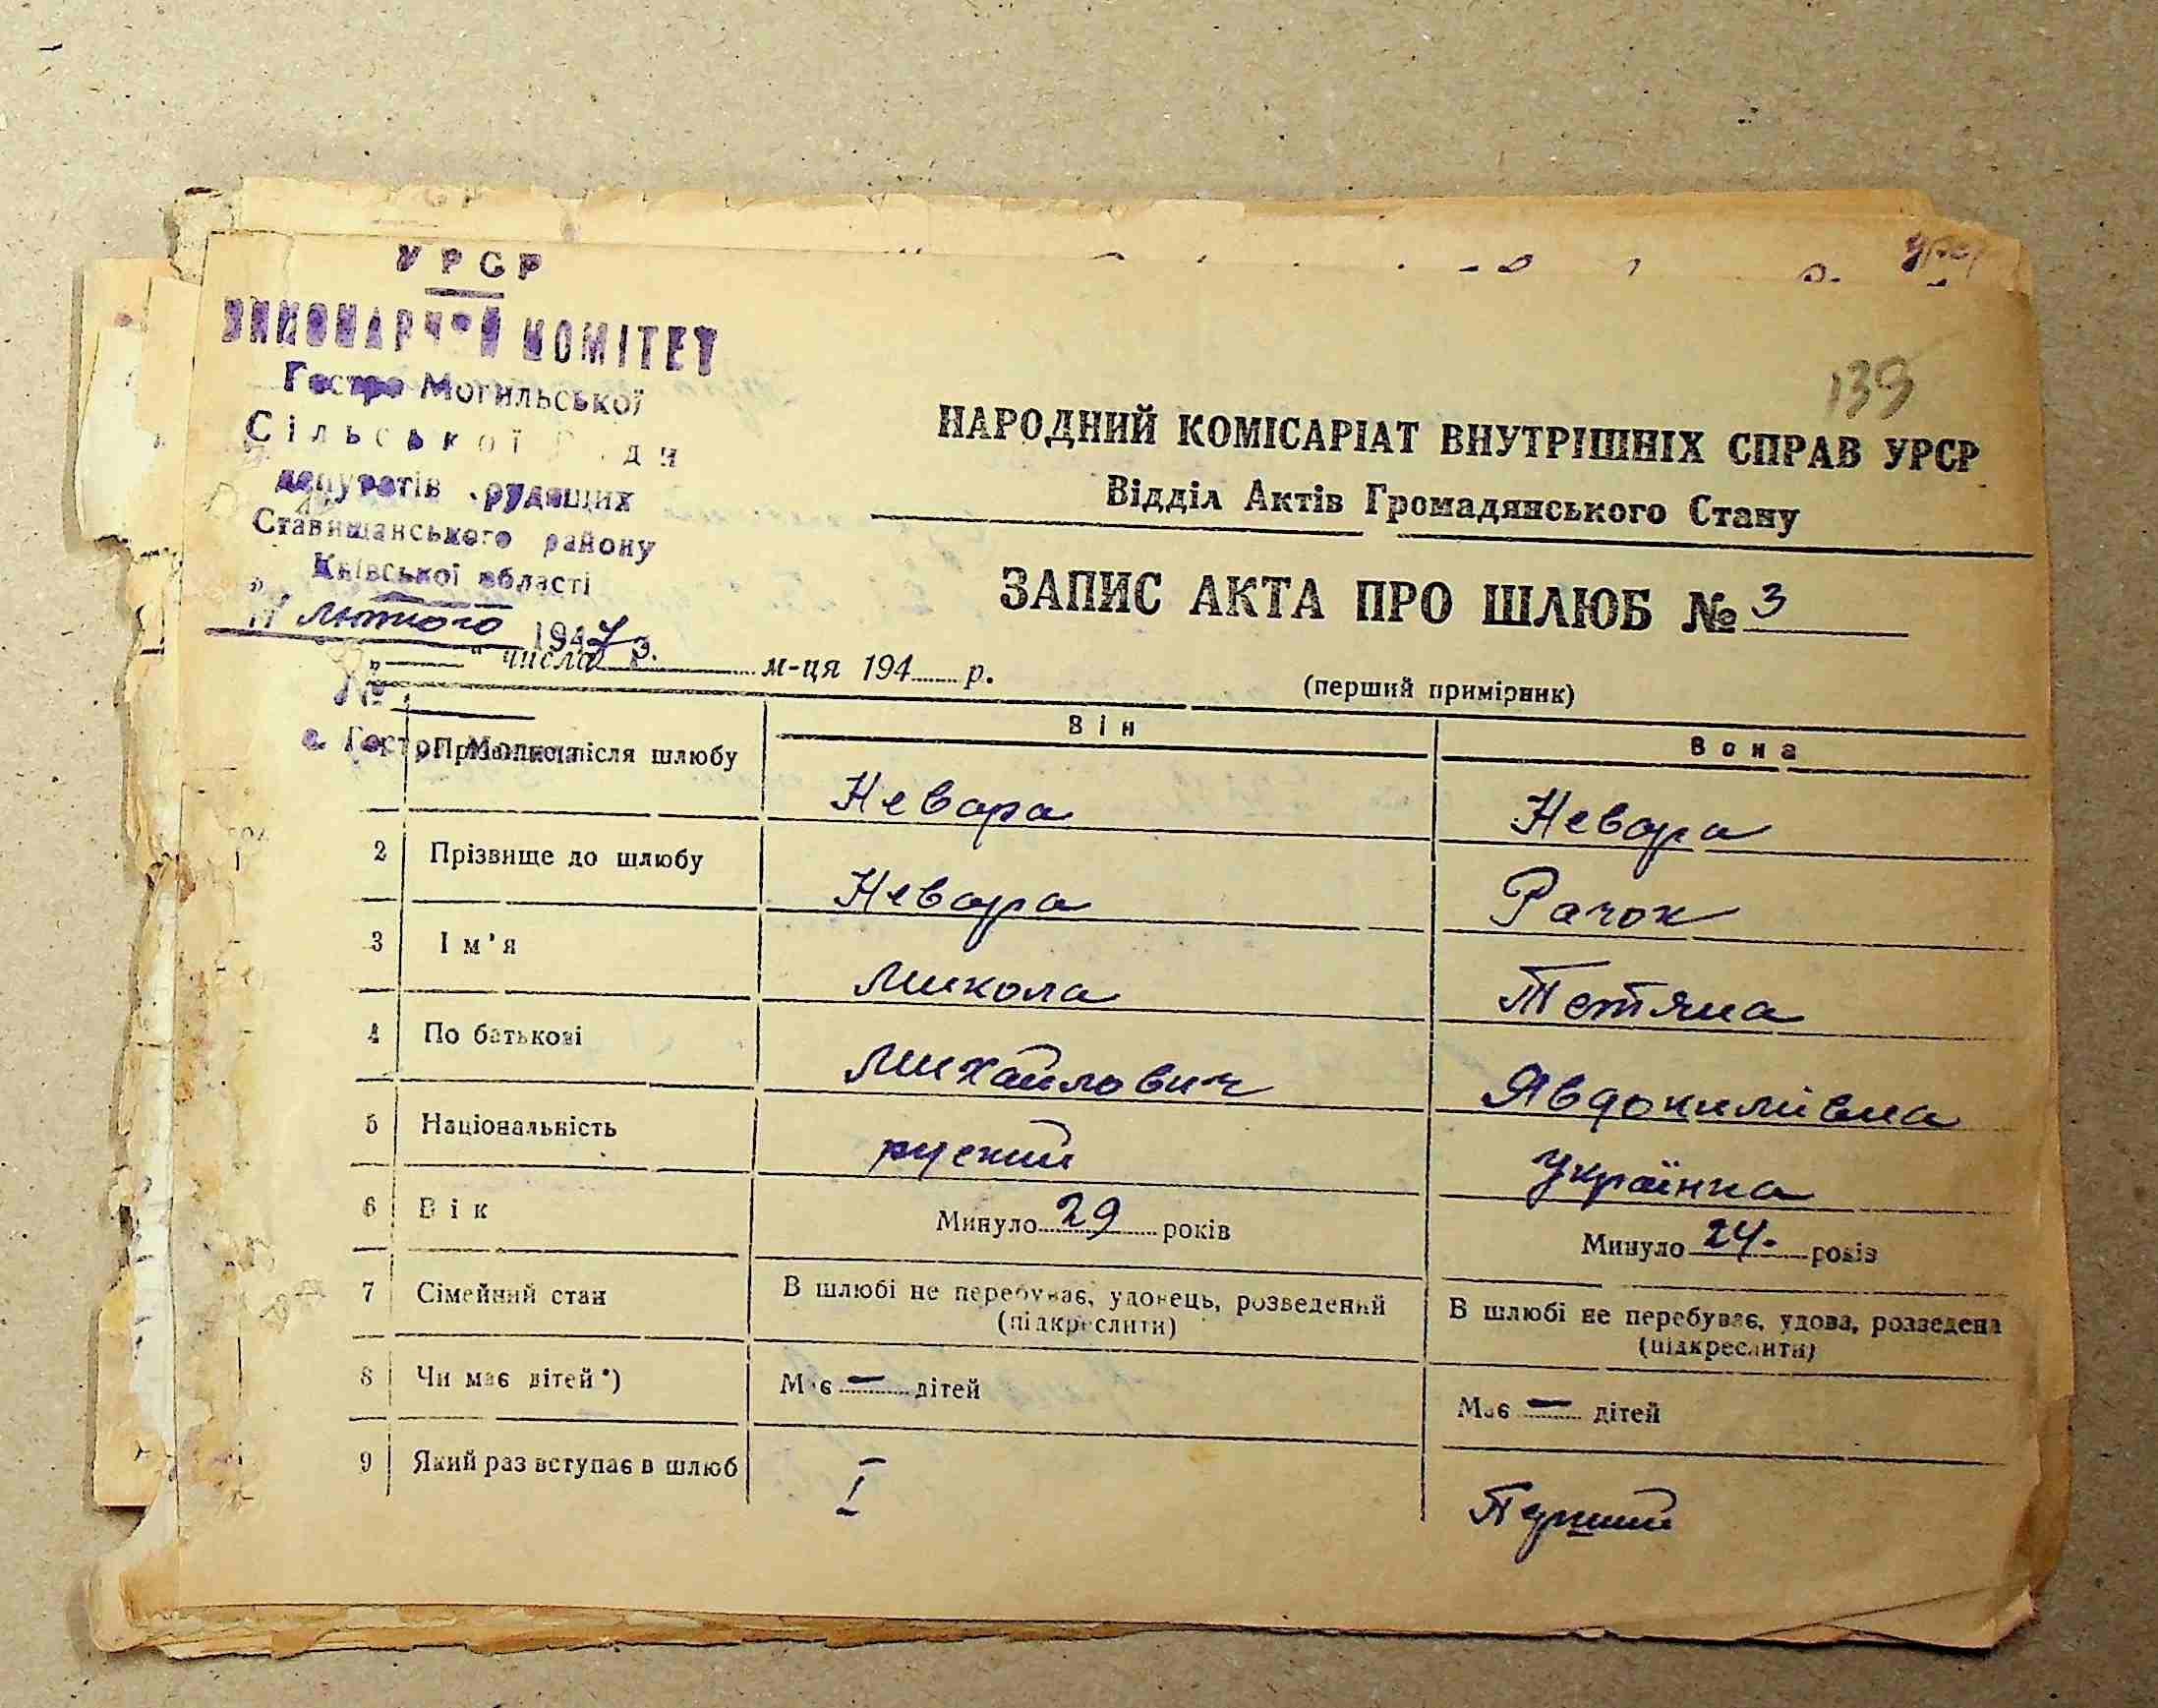 УРСР
ВИКОНАВЧИЙ КОМІТЕТ
Гостро Могильської
Сільської Ради
депутатів трудящих
Ставищанського району
Київської області
лютого 1947 р.
139
НАРОДНИЙ КОМІСАРІАТ ВНУТРІШНІХ СПРАВ УРСР
Відділ Актів Громадянського Стану
ЗАПИС АКТА ПРО ШЛЮБ № 3
„ “ числа м-ця 194 р.
(перший примірник)
№
с. Гостра Могила
Він Вона
Прізвище після шлюбу Невара Невара
2 Прізвище до шлюбу Невара Рачок
3 Ім'я Микола Тетяна
4 По батькові Михайлович Явдокимівна
5 Національність руский Українка
6 Вік Минуло 29 років Минуло 24. років
7 Сімейний стан В шлюбі не перебуває, удовець, розведений (підкреслити) В шлюбі не перебуває, удова, розведена (підкреслити)
8 Чи має дітей*) Має — дітей Має — дітей
9 Який раз вступає в шлюб I Перший